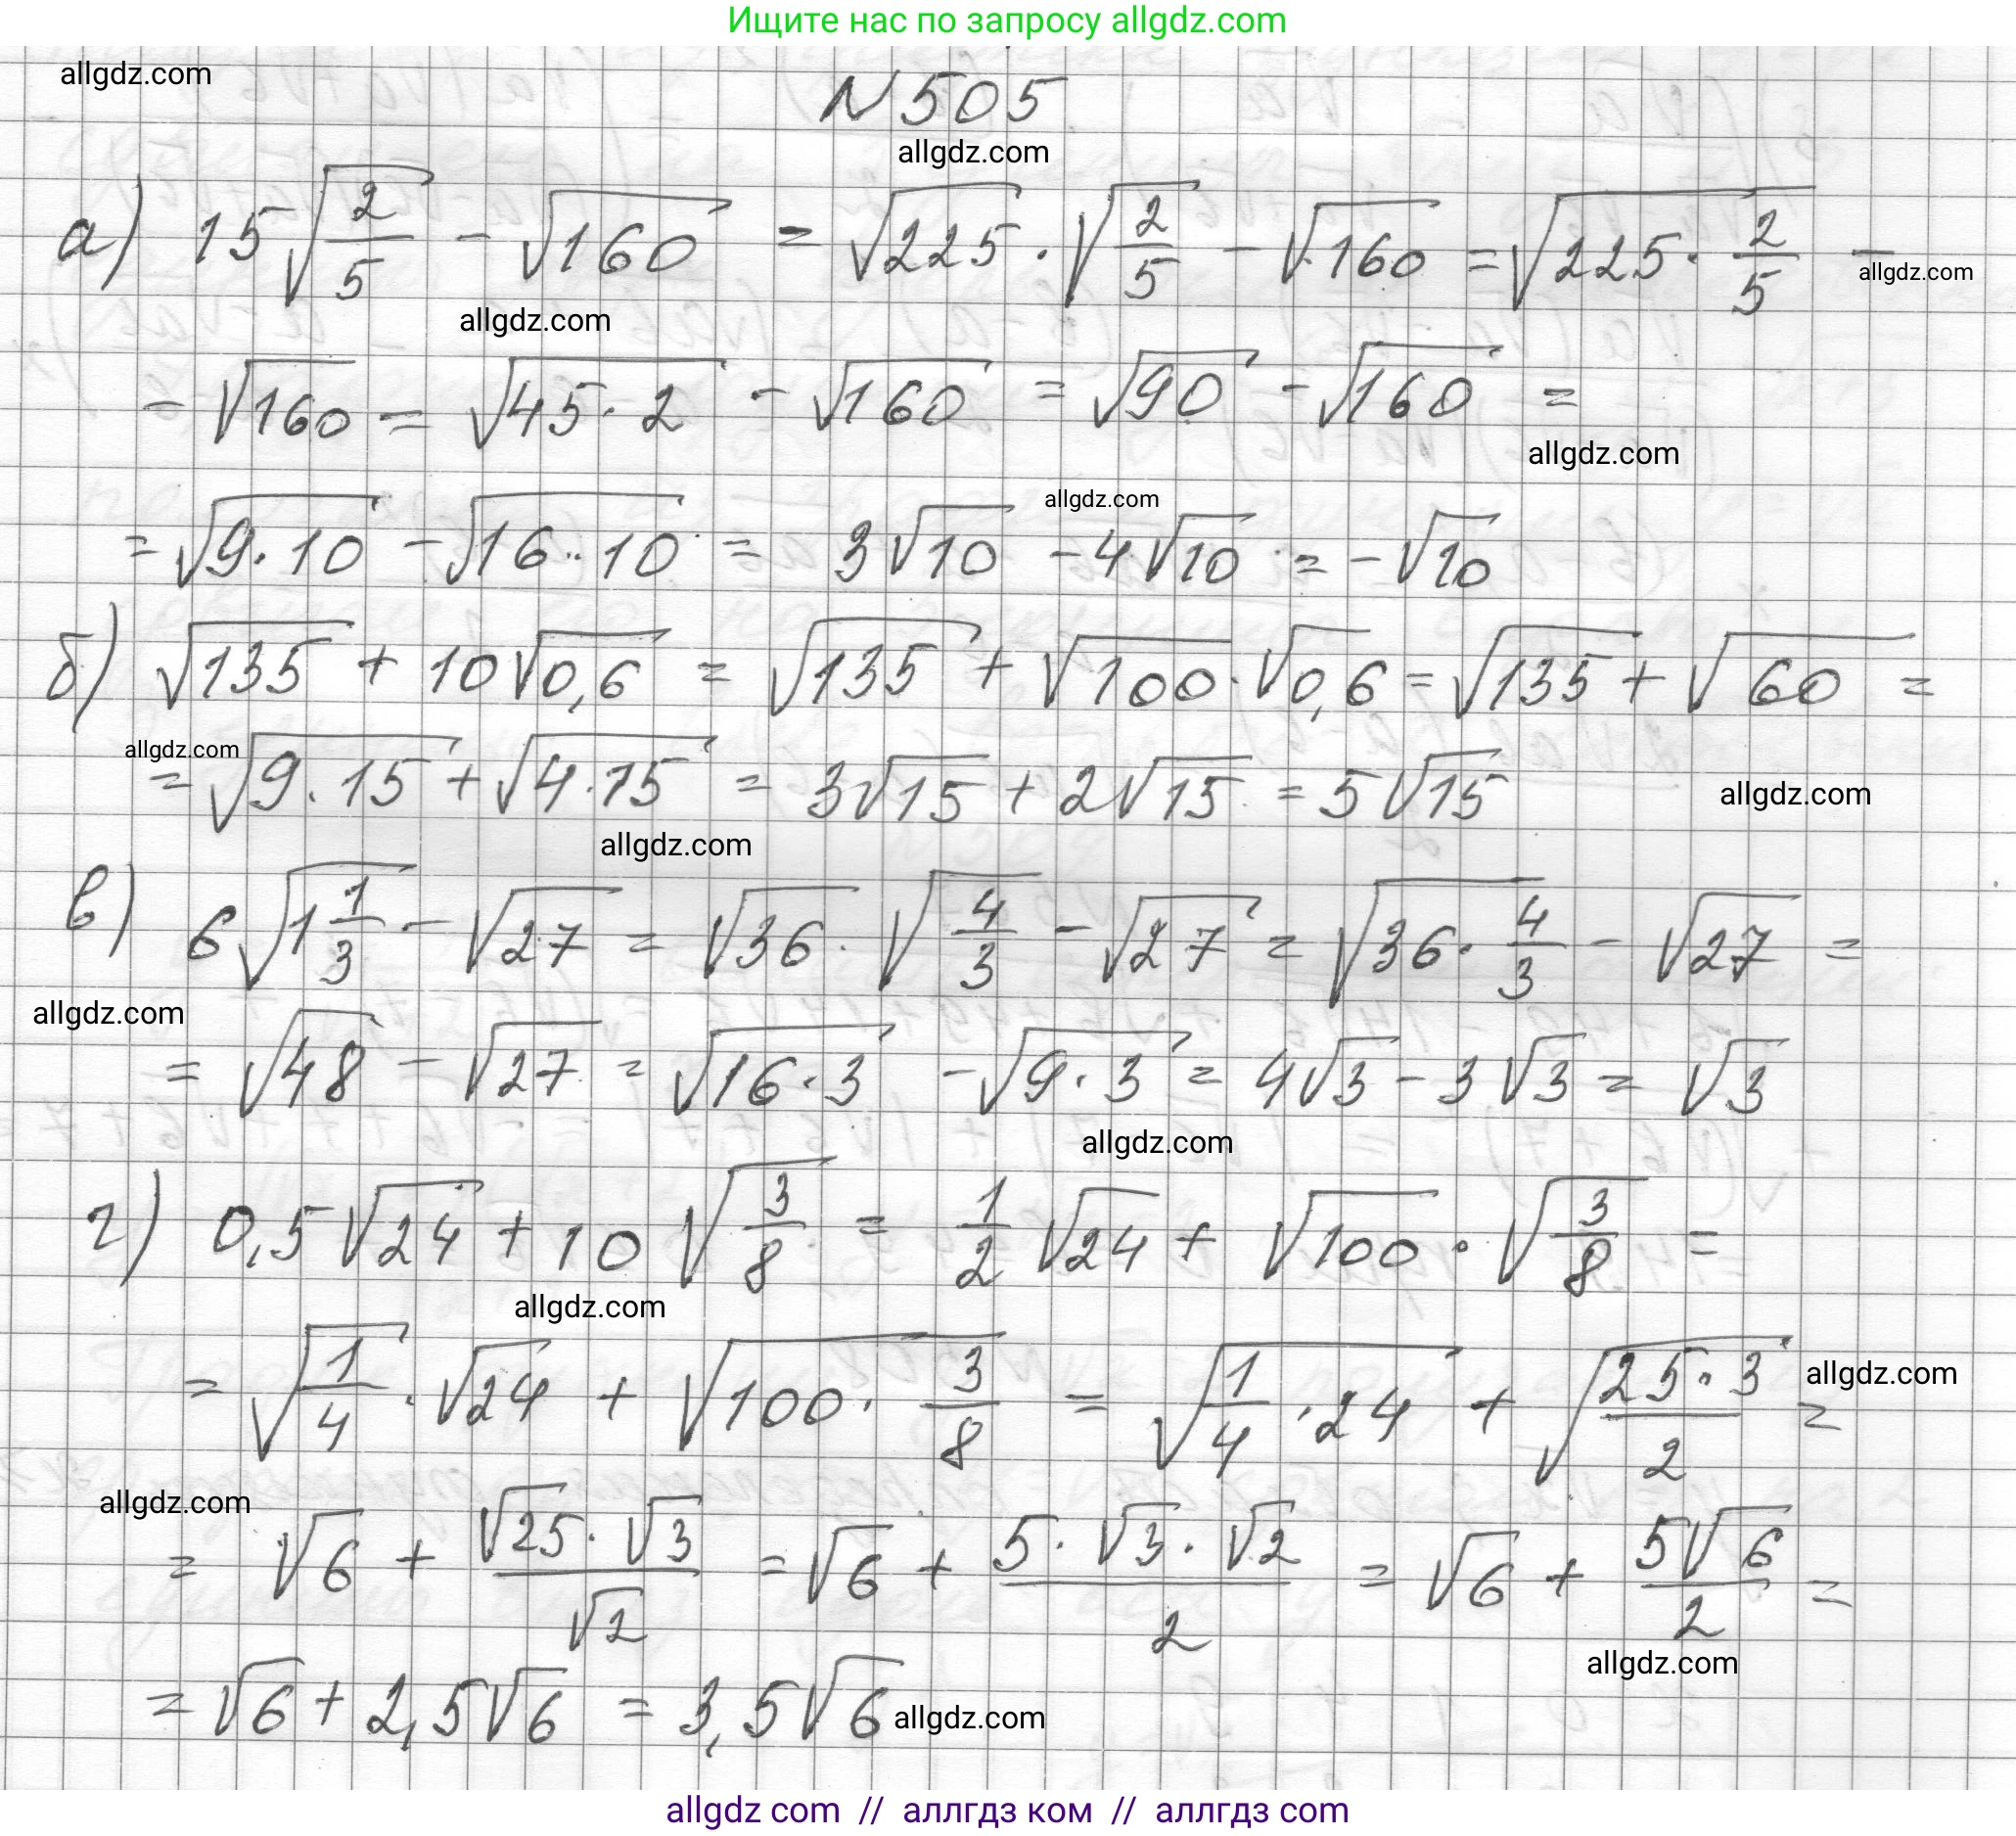 Ищите нас по запросу allgdz.com
allgdz.com
N 505
allgdz.com
а) 15√(2/5) - √160 = √225 · √(2/5) - √160 = √(225 · 2/5) -
allgdz.com
allgdz.com
- √160 = √(45 · 2) - √160 = √90 - √160 =
allgdz.com
allgdz.com
= √(9 · 10) - √(16 · 10) = 3√10 - 4√10 = -√10
б) √135 + 10√0,6 = √135 + √100 · √0,6 = √135 + √60 =
allgdz.com
= √(9 · 15) + √(4 · 15) = 3√15 + 2√15 = 5√15
allgdz.com
allgdz.com
в) 6√(1 1/3) - √27 = √36 · √(4/3) - √27 = √(36 · 4/3) - √27 =
allgdz.com
= √48 - √27 = √(16 · 3) - √(9 · 3) = 4√3 - 3√3 = √3
allgdz.com
г) 0,5√24 + 10√(3/8) = 1/2 √24 + √100 · √(3/8) =
allgdz.com
= √(1/4) · √24 + √(100 · 3/8) = √(1/4 · 24) + √((25 · 3)/2) =
allgdz.com
allgdz.com
= √6 + (√25 · √3)/√2 = √6 + (5 · √3 · √2)/2 = √6 + 5√6/2 =
allgdz.com
= √6 + 2,5√6 = 3,5√6
allgdz.com
allgdz com // аллгдз ком // аллгдз com